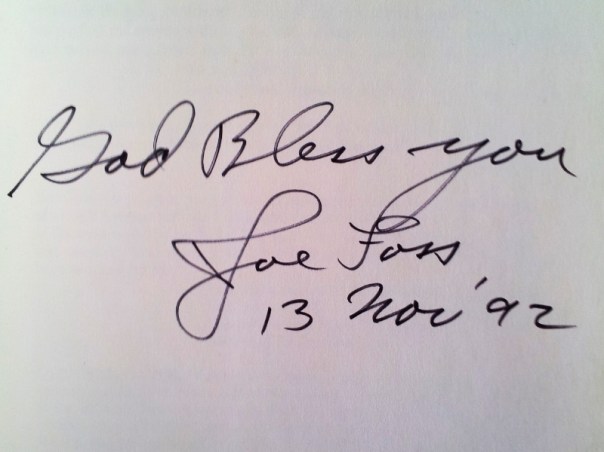 God Bless you
Joe Foss
13 Nov '92